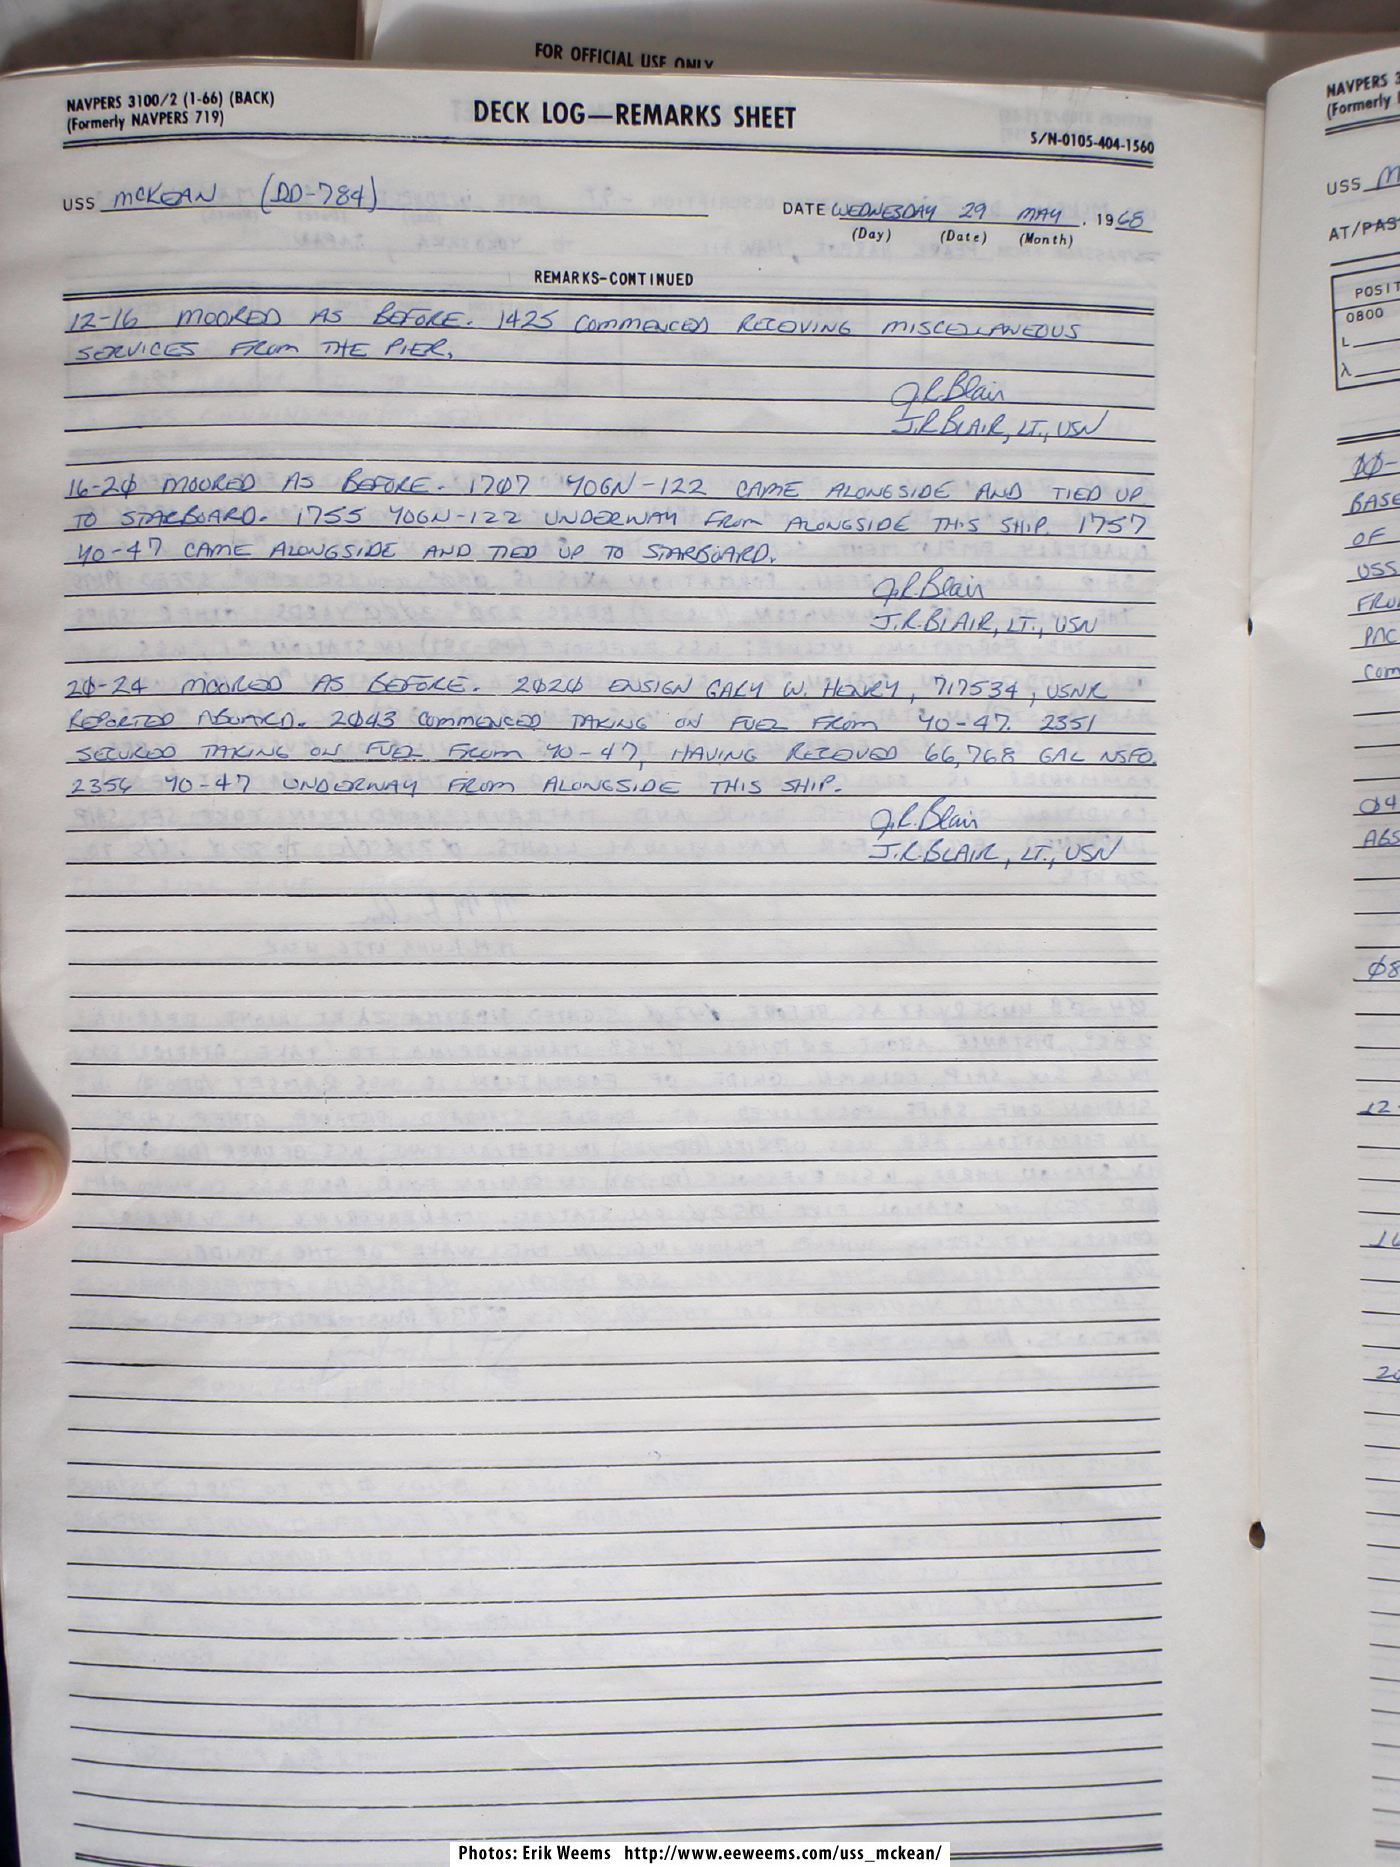 FOR OFFICIAL USE ONLY
NAVPERS 3100/2 (1-66) (BACK)
(Formerly NAVPERS 719)
DECK LOG—REMARKS SHEET
S/N-0105-404-1560
USS McKEAN (DD-784)
DATE WEDNESDAY 29 MAY, 1968
(Day) (Date) (Month)
REMARKS-CONTINUED
12-16 MOORED AS BEFORE. 1425 COMMENCED RECEIVING MISCELLANEOUS
SERVICES FROM THE PIER.
J.R. Blair
J.R. BLAIR, LT., USN
16-20 MOORED AS BEFORE. 1707 YOGN-122 CAME ALONGSIDE AND TIED UP
TO STARBOARD. 1755 YOGN-122 UNDERWAY FROM ALONGSIDE THIS SHIP. 1757
YO-47 CAME ALONGSIDE AND TIED UP TO STARBOARD.
J.R. Blair
J.R. BLAIR, LT., USN
20-24 MOORED AS BEFORE. 2020 ENSIGN GARY W. HENRY, 717534, USNR
REPORTED ABOARD. 2043 COMMENCED TAKING ON FUEL FROM YO-47. 2351
SECURED TAKING ON FUEL FROM YO-47, HAVING RECEIVED 66,768 GAL NSFO.
2356 YO-47 UNDERWAY FROM ALONGSIDE THIS SHIP.
J.R. Blair
J.R. BLAIR, LT., USN
NAVPERS
(Formerly
USS
AT/PAS
POSIT
0800
L
λ
00-
BASE
OF
USS
FRO
PAC
COM
04
ABS
08
12-
16
20
Photos: Erik Weems http://www.eeweems.com/uss_mckean/